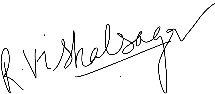 R. Vishalsagar